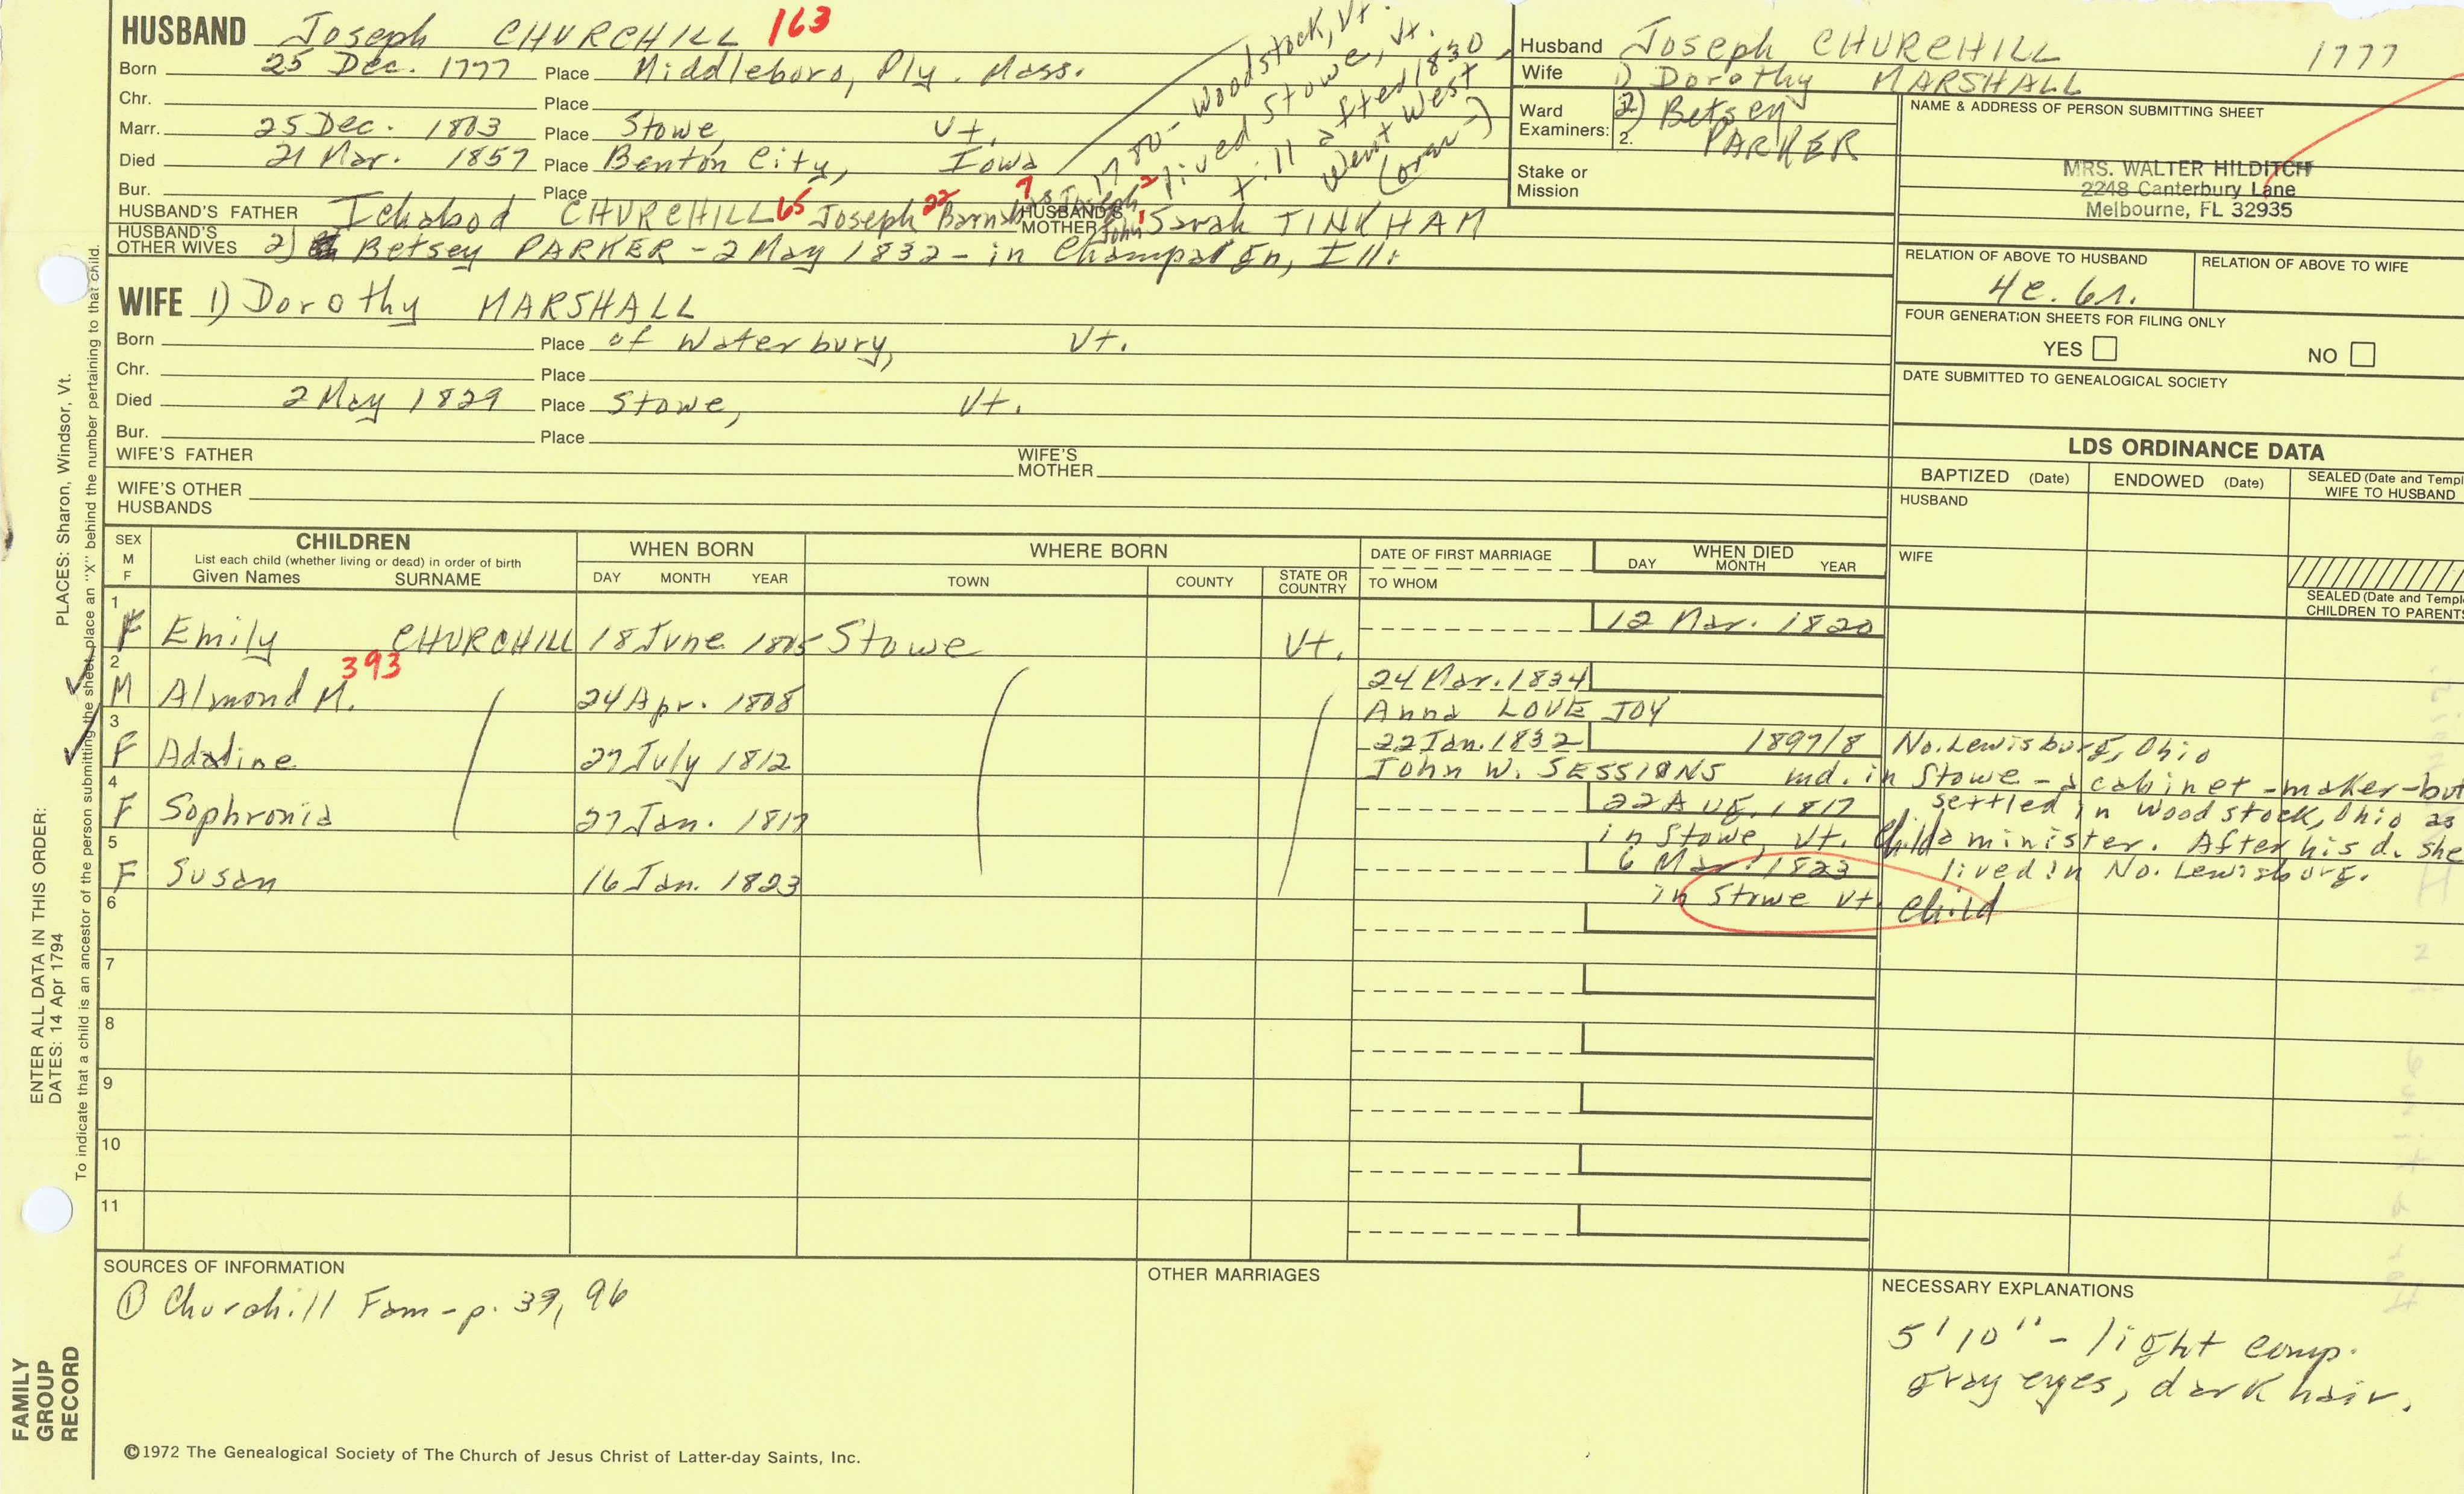 HUSBAND Joseph CHURCHILL 163
Born 25 Dec. 1777 Place Middleboro, Ply. Mass.
Chr. Place
Marr. 25 Dec. 1803 Place Stowe, Vt.
Died 21 Mar. 1857 Place Benton City, Iowa
Bur. Place
1780 - Woodstock, Vt.
lived Stowe, Vt.
till after 1830
Went West
HUSBAND'S FATHER Ichabod CHURCHILL 65 Joseph 22 Barnabas 7 Joseph 2 John 1 HUSBAND'S MOTHER Sarah TINKHAM
HUSBAND'S OTHER WIVES 2) Betsey PARKER - 2 May 1832 - in Champaign, Ill.
WIFE 1) Dorothy MARSHALL
Born Place of Waterbury, Vt.
Chr. Place
Died 2 May 1829 Place Stowe, Vt.
Bur. Place
WIFE'S FATHER WIFE'S MOTHER
WIFE'S OTHER HUSBANDS
Husband Joseph CHURCHILL 1777
Wife 1) Dorothy MARSHALL
Ward Examiners: 2) Betsey
2. PARKER
Stake or Mission
NAME & ADDRESS OF PERSON SUBMITTING SHEET
MRS. WALTER HILDITCH
2248 Canterbury Lane
Melbourne, FL 32935
RELATION OF ABOVE TO HUSBAND RELATION OF ABOVE TO WIFE
4c. 6r.
FOUR GENERATION SHEETS FOR FILING ONLY
YES NO
DATE SUBMITTED TO GENEALOGICAL SOCIETY
LDS ORDINANCE DATA
BAPTIZED (Date) ENDOWED (Date) SEALED (Date and Templ
WIFE TO HUSBAND
HUSBAND
WIFE
SEALED (Date and Templ
CHILDREN TO PARENTS
SEX M F
CHILDREN
List each child (whether living or dead) in order of birth
Given Names SURNAME
WHEN BORN
DAY MONTH YEAR
WHERE BORN
TOWN COUNTY STATE OR COUNTRY
DATE OF FIRST MARRIAGE
TO WHOM
WHEN DIED
DAY MONTH YEAR
1 F Emily CHURCHILL 18 June 1805 Stowe Vt. 12 Mar. 1820
2 M Almond M. 393 24 Apr. 1808 24 Mar. 1834
Anna LOVEJOY
3 F Adaline 27 July 1812 22 Jan. 1832 1897/8 No. Lewisburg, Ohio
John W. SESSIONS md. in Stowe - a cabinet-maker - but
4 F Sophronia 27 Jan. 1817 22 Aug. 1817 settled in Woodstock, Ohio as
in Stowe, Vt. Child a minister. After his d. she
5 F Susan 16 Jan. 1823 6 Mar. 1823 lived in No. Lewisburg.
in Stowe Vt. Child
6
7
8
9
10
11
SOURCES OF INFORMATION
① Churchill Fam - p. 39, 96
OTHER MARRIAGES
NECESSARY EXPLANATIONS
5'10" - light comp.
gray eyes, dark hair.
©1972 The Genealogical Society of The Church of Jesus Christ of Latter-day Saints, Inc.
FAMILY GROUP RECORD
ENTER ALL DATA IN THIS ORDER:
DATES: 14 Apr 1794
PLACES: Sharon, Windsor, Vt.
To indicate that a child is an ancestor of the person submitting the sheet, place an "X" behind the number pertaining to that child.